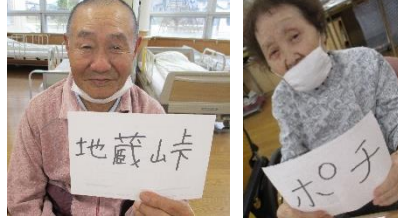 地蔵峠
ポチ